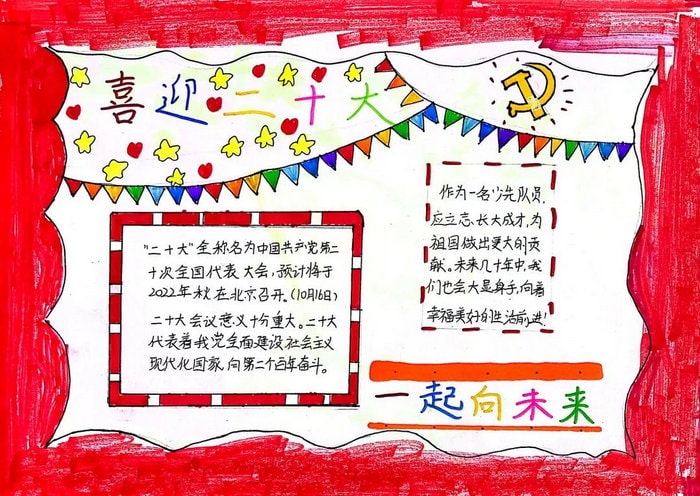 喜迎二十大
"二十大"全称名为中国共产党第二
十次全国代表大会，预计将于
2022年秋在北京召开。(10月16日)
二十大会议意义十分重大。二十大
代表着我党全面建设社会主义
现代化国家，向第二个百年奋斗。
作为一名少先队员，
应立志，长大成才，为
祖国做出更大的贡
献。未来几十年中，我
们也会大显身手，向着
幸福美好的生活前进！
一起向未来